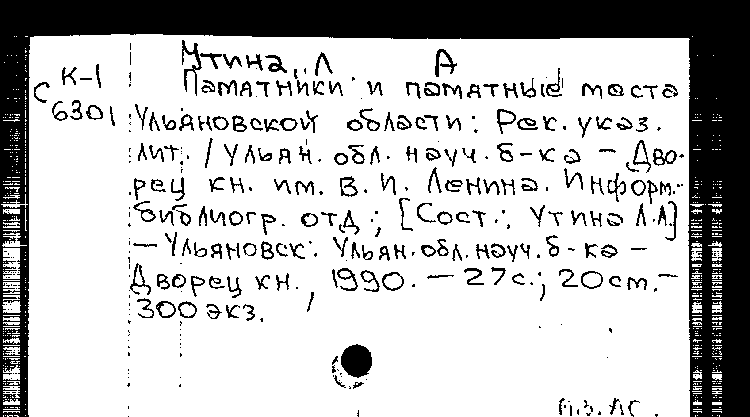 Утина, Л А
К-1
С 6301
Памятники и памятные места
Ульяновской области: Рек. указ.
лит. / Ульян. обл. науч. б-ка – Дво-
рец кн. им. В. И. Ленина. Информ.-
библиогр. отд.; [Сост.: Утина Л.А]
— Ульяновск: Ульян. обл. науч. б-ка –
Дворец кн., 1990. — 27 с.; 20 см. —
300 экз.